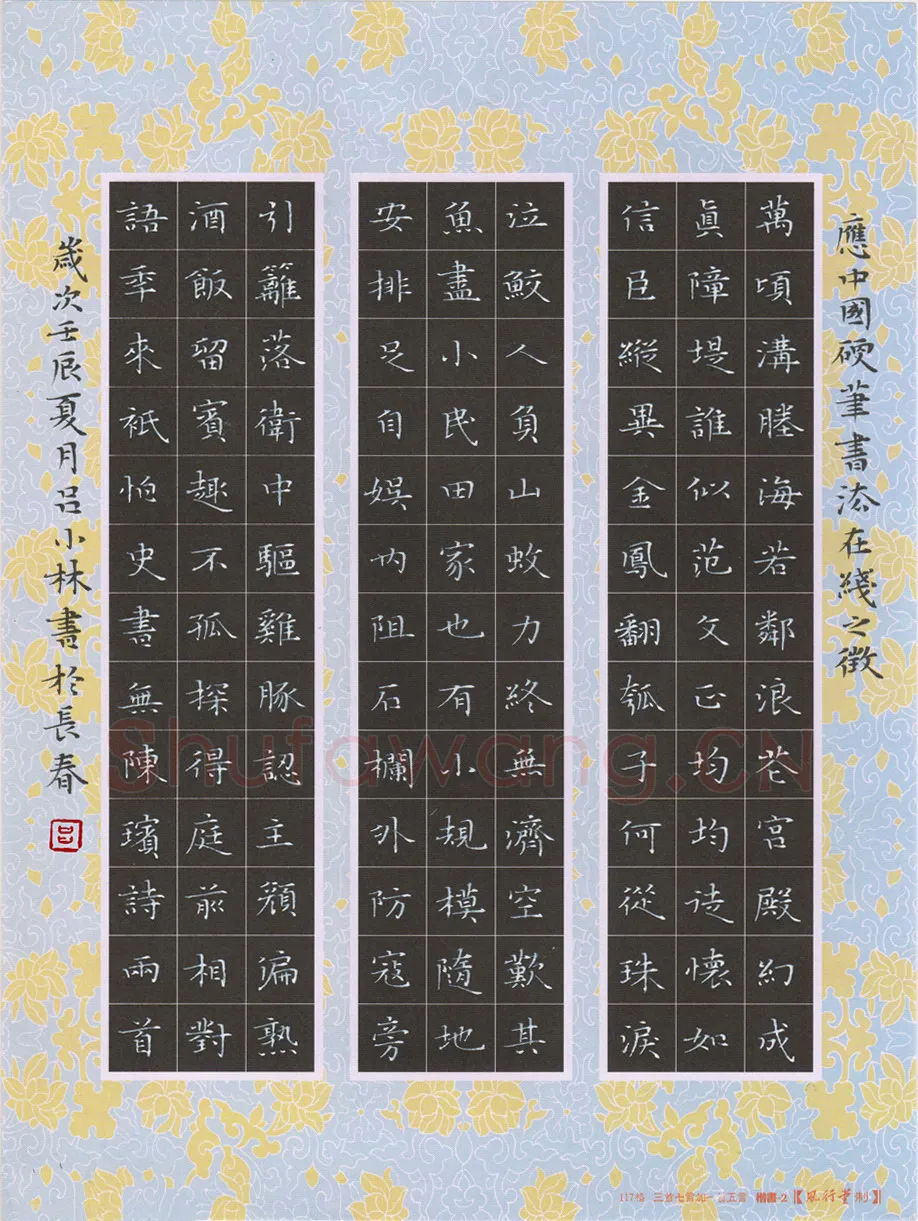 應中國硬筆書法在綫之徵
萬頃溝塍海若鄰浪花宮殿幻成
真障堤誰似范文正均均徒懷如
信臣縱異金鳳翻瓠子何從珠淚
泣鮫人負山蚊力終無濟空歎其
魚盡小民田家也有小規模隨地
安排足自娛內阻石欄外防寇旁
引籬落衛中驅雞豚認主顏偏熟
酒飯留賓趣不孤探得庭前相對
語年來祇怕史書無陳瓆詩兩首
歲次壬辰夏月呂小林書於長春
呂
Shufawang.CN
117格 三放七言加一首五言 楷書-2【風行堂制】